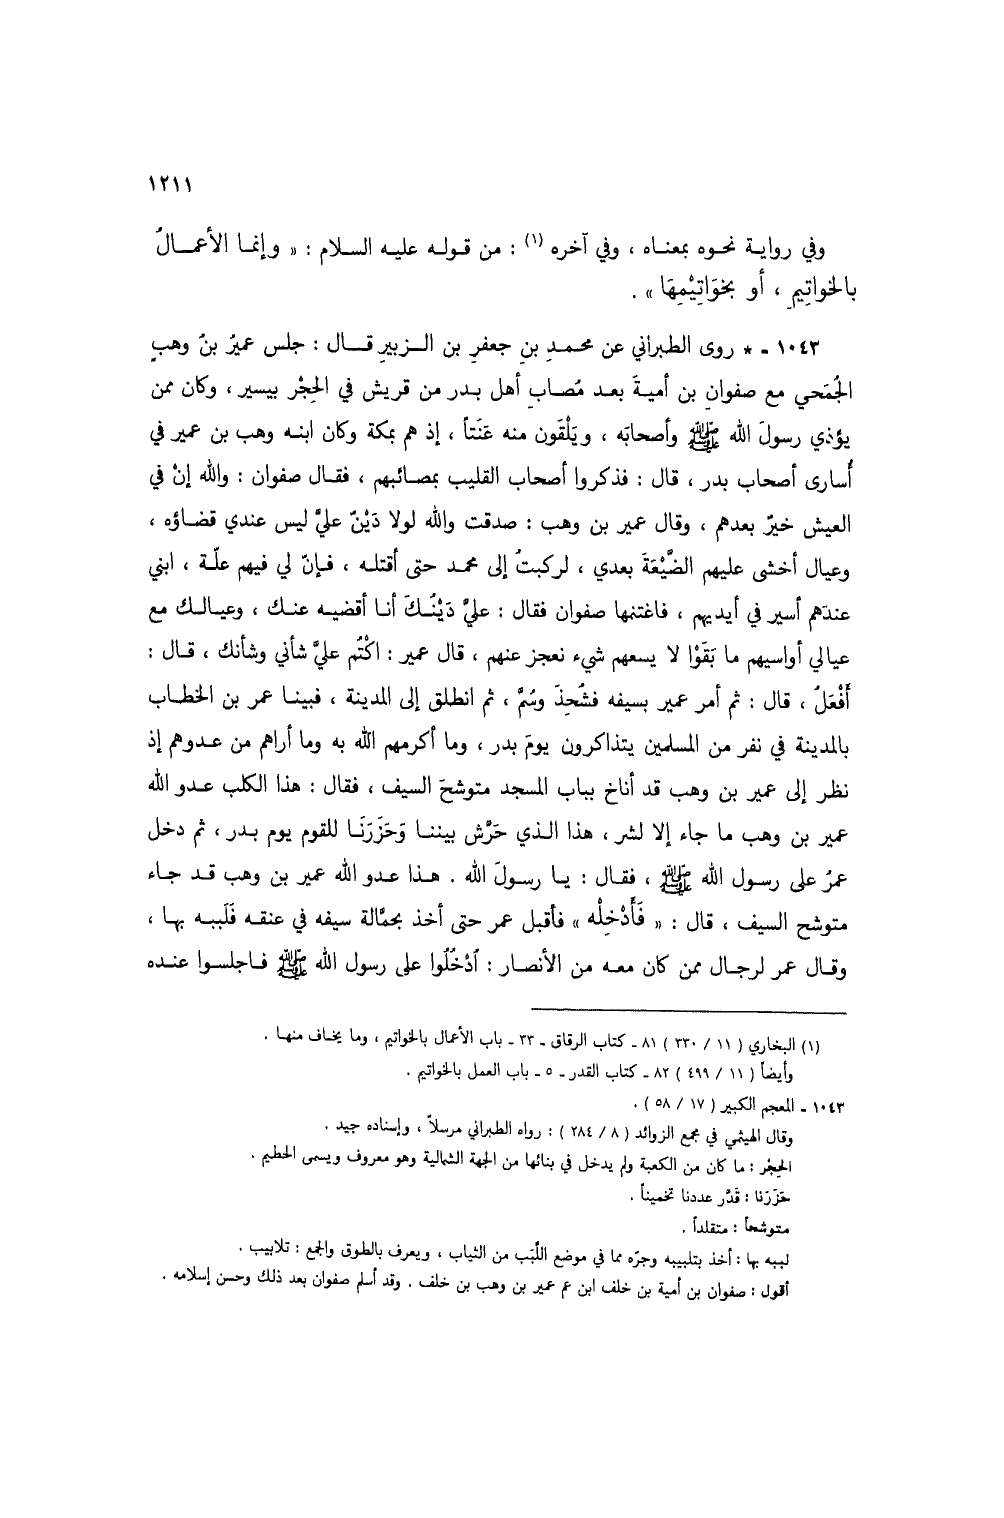 ١٢١١
وفي روايـة نحـوه بمعنـاه ، وفي آخره (١) : من قـولـه عليـه السـلام : « وإنمـا الأعمـالُ
بالخواتِيمِ ، أو بخوَاتِيْمِهَا » .
١٠٤٣ - * روى الطبراني عن محمـدِ بنِ جعفرِ بن الـزبيرِ قـال : جلس عميرُ بنُ وهبٍ
الجُمَحي مع صفوانِ بن أميةَ بعـد مُصـابِ أهل بـدر من قريش في الحِجْر بيسير ، وكان ممن
يؤذي رسولَ الله ﷺ وأصحابَه ، ويَلْقَون منه عَنَتاً ، إذ هم بمكة وكان ابنـه وهب بن عمير في
أُسارى أصحاب بدر ، قال : فذكروا أصحاب القليب بمصائبهم ، فقـال صفوان : والله إنْ في
العيش خيرٌ بعدهم ، وقال عمير بن وهب : صدقت والله لولا دَيْنٌ عليَّ ليس عندي قضـاؤه ،
وعيال أخشى عليهم الضَّيْعَةَ بعدي ، لركبتُ إلى محمـد حتى أقتلـه ، فـإنّ لي فيهم علّـة ، ابني
عندَهم أسير في أيديهم ، فاغتنمها صفوان فقال : عليَّ دَيْنُـكَ أنـا أقضيـه عنـك ، وعيـالـك مع
عيالي أواسيهم ما بَقَوْا لا يسعهم شيء نعجز عنهم ، قال عمير : اكْتُم عليَّ شأني وشأنك ، قـال :
أَفْعَلُ ، قال : ثم أمر عمير بسيفه فشُحِذَ وسُمَّ ، ثم انطلق إلى المدينة ، فبينـا عمر بن الخطـاب
بالمدينة في نفر من المسلمين يتذاكرون يومَ بدر ، وما أكرمهم الله به وما أراهم من عـدوهم إذ
نظر إلى عمير بن وهب قد أناخ بباب المسجد متوشحَ السيف ، فقال : هذا الكلب عـدو الله
عمير بن وهب ما جاء إلا لشر ، هذا الـذي حَرَّش بيننـا وَحَزَرَنَـا للقوم يوم بـدر ، ثم دخل
عمرُ على رسول الله ﷺ ، فقـال : يـا رسولَ الله . هـذا عدو الله عمير بن وهب قـد جـاء
متوشح السيف ، قال : « فَأَدْخِلْه » فأقبل عمر حتى أخذ بحمَّالة سيفه في عنقـه فَلَببـه بهـا ،
وقـال عمر لرجـال ممن كان معـه من الأنصـار : اَدْخُلُوا على رسول الله ﷺ فـاجلسوا عنـده
(١) البخاري ( ١١ / ٣٣٠ ) ٨١ - كتاب الرقاق - ٣٣ - باب الأعمال بالخواتيم ، وما يخاف منهـا .
وأيضاً ( ١١ / ٤٩٩ ) ٨٢ - كتاب القدر - ٥ - باب العمل بالخواتيم .
١٠٤٣ - المعجم الكبير ( ١٧ / ٥٨ ) .
وقال الهيثمي في مجمع الزوائد ( ٨ / ٢٨٤ ) : رواه الطبراني مرسلاً ، وإسناده جيد .
الحِجْر : ما كان من الكعبة ولم يدخل في بنائها من الجهة الشمالية وهو معروف ويسمى الحطيم .
حَزَرَنا : قَدَّر عددنا تخميناً .
متوشحاً : متقلداً .
لببه بها : أخذ بتلبيبه وجرّه مما في موضع اللَّبَب من الثياب ، ويعرف بالطوق والجمع : تلابيب .
أقول : صفوان بن أمية بن خلف ابن عم عمير بن وهب بن خلف . وقد أسلم صفوان بعد ذلك وحسن إسلامه .